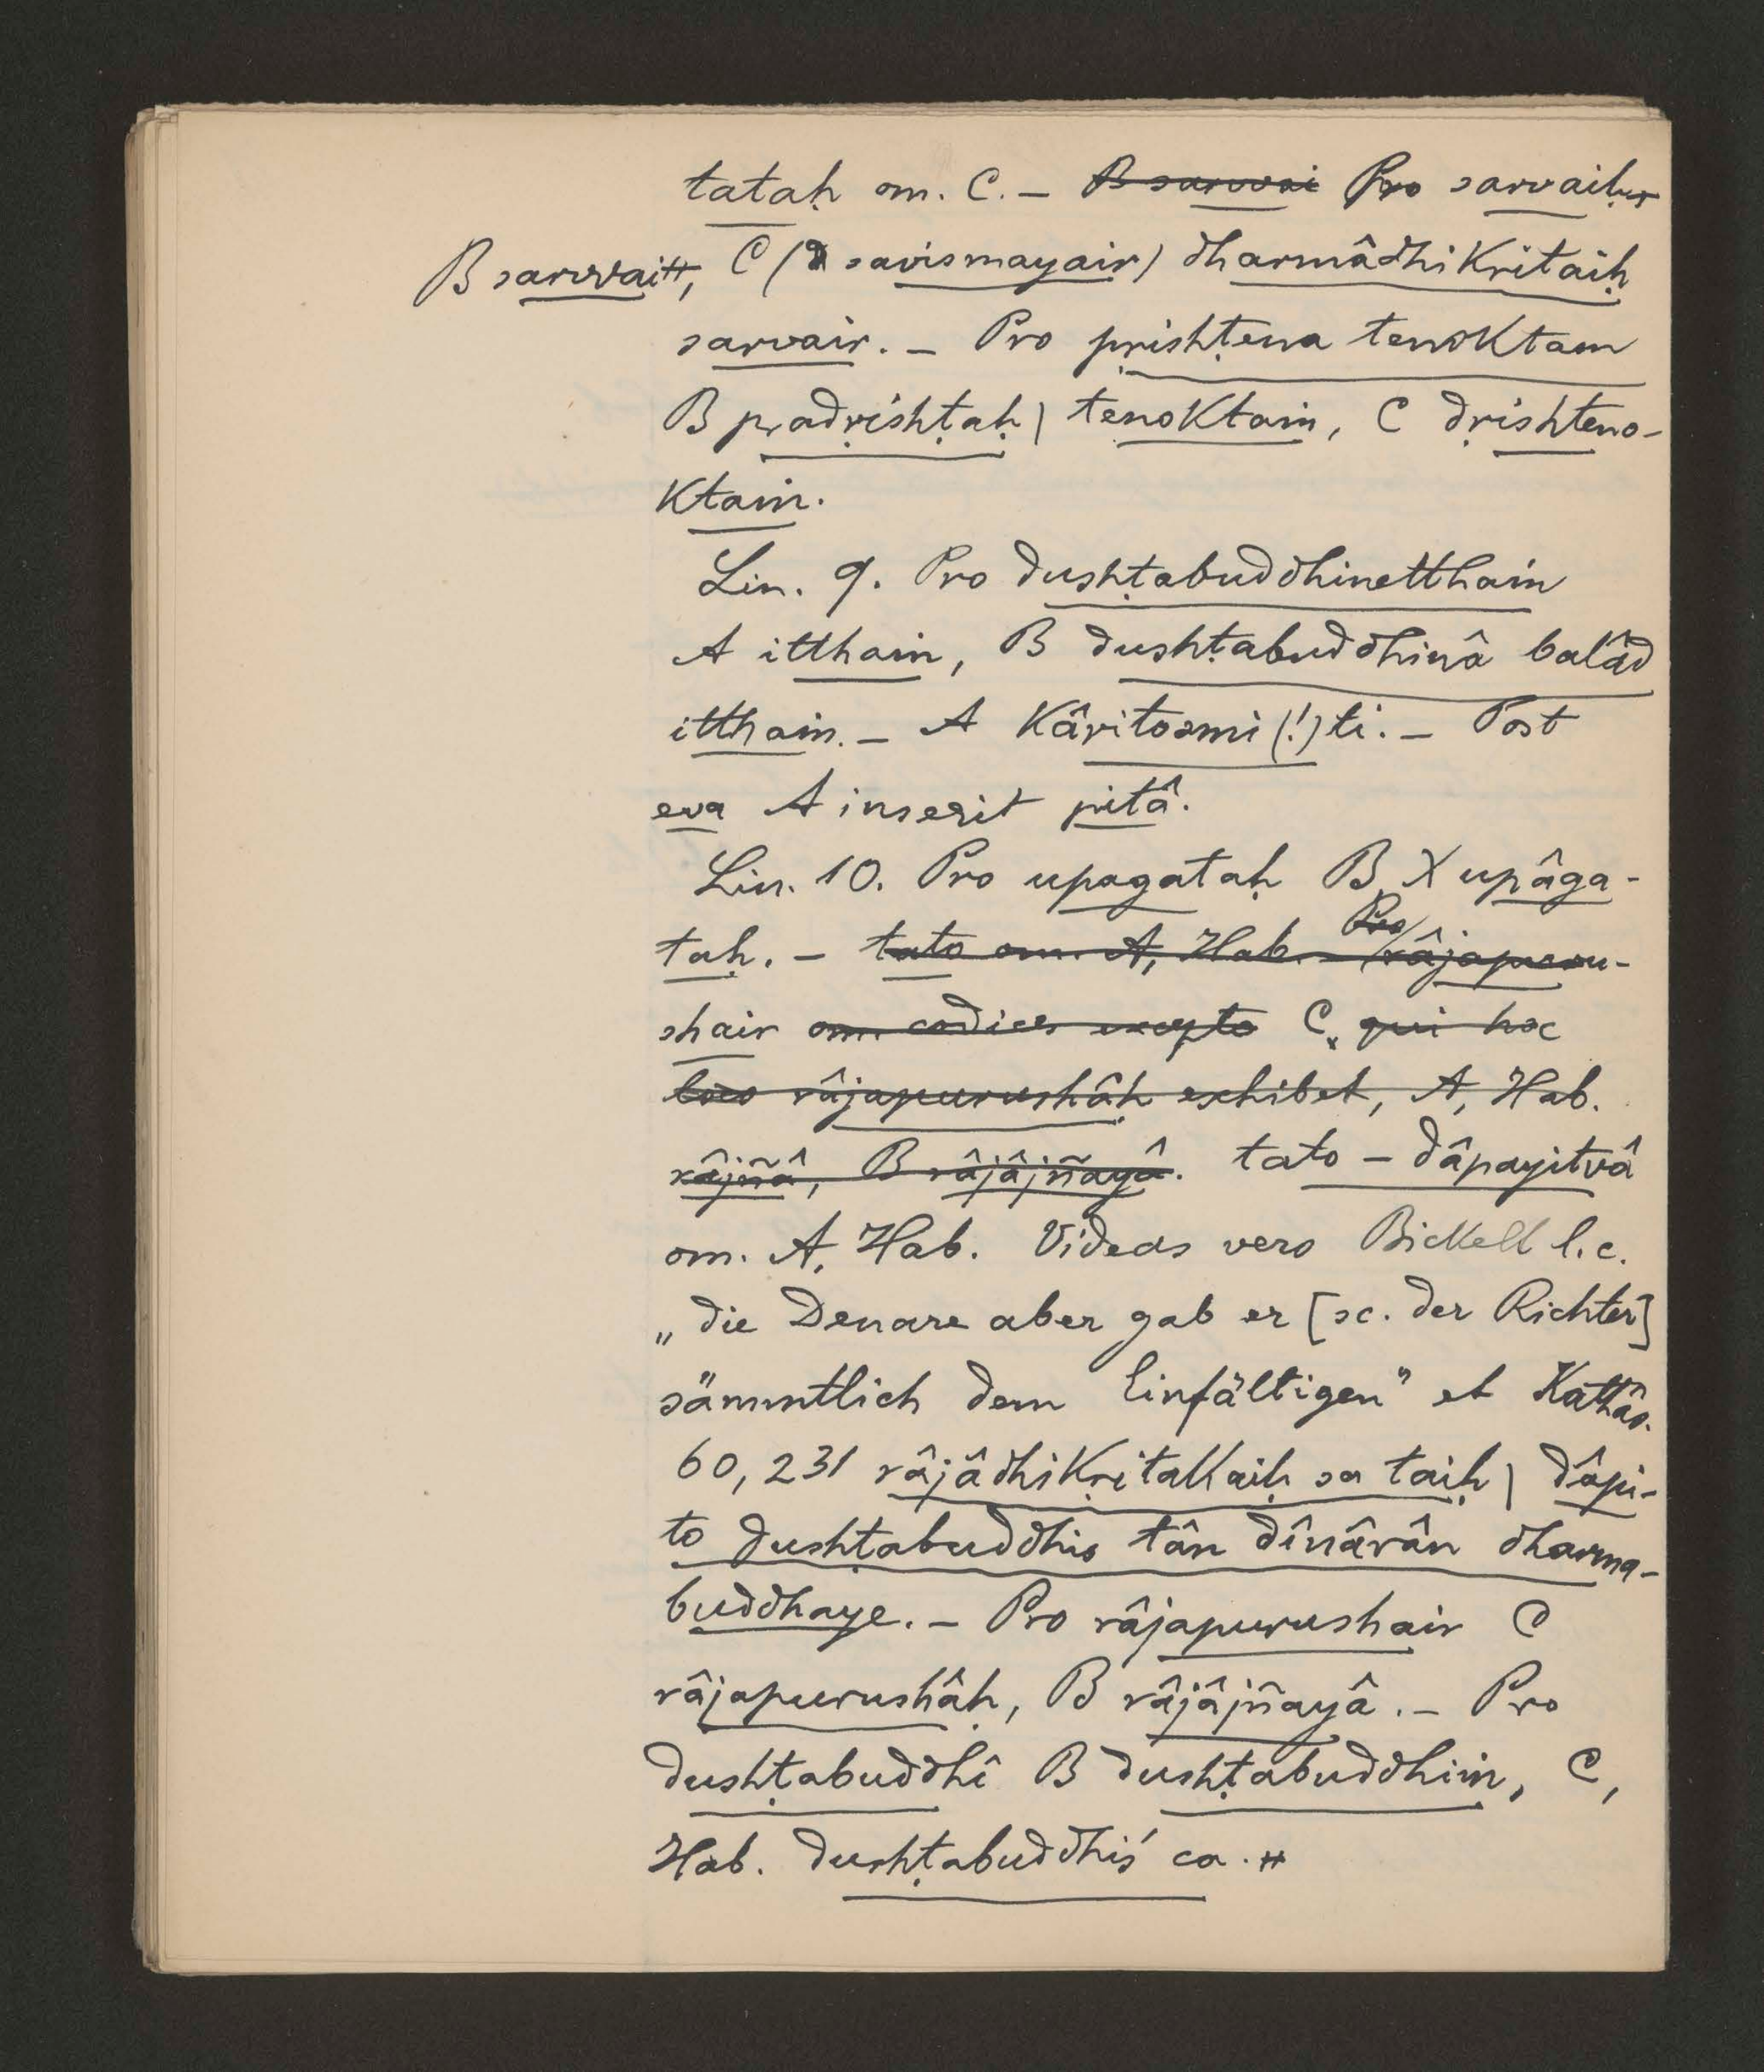 tataḥ om. C. – B sarvvai Pro sarvaiḥ
B sarvvai, C (savismayair) dharmâdhikṛitaiḥ
sarvair. – Pro pṛishṭena tenoktaṁ
B pradṛishṭaḥ | tenoktaṁ, C dṛishteno-
ktaṁ.
Lin. 9. Pro dushṭabuddhinetthaṁ
A itthaṁ, B dushṭabuddhinâ balâd
itthaṁ. – A kâritosmi (!) ti. – Post
eva A inserit pitâ.
Lin. 10. Pro upagataḥ B upâga-
taḥ. – tato om. A, Hab. – Pro râjapuru-
shair om. codices excepto C, qui hoc
loco râjapurushâḥ exhibet, A, Hab.
râjñâ, B râjâjñayâ. tato – dâpayitvâ
om. A, Hab. Videas vero Bickell l. c.
„die Denare aber gab er [sc. der Richter]
sämmtlich dem Einfältigen" et Kathâs.
60, 231 râjâdhikṛitakaiḥ sa taiḥ | dâpi-
to dushṭabuddhis tân dînârân dharma-
buddhaye. – Pro râjapurushair C
râjapurushâḥ, B râjâjñayâ. – Pro
dushṭabuddhî B dushṭabuddhiṁ, C,
Hab. dushṭabuddhiś ca.